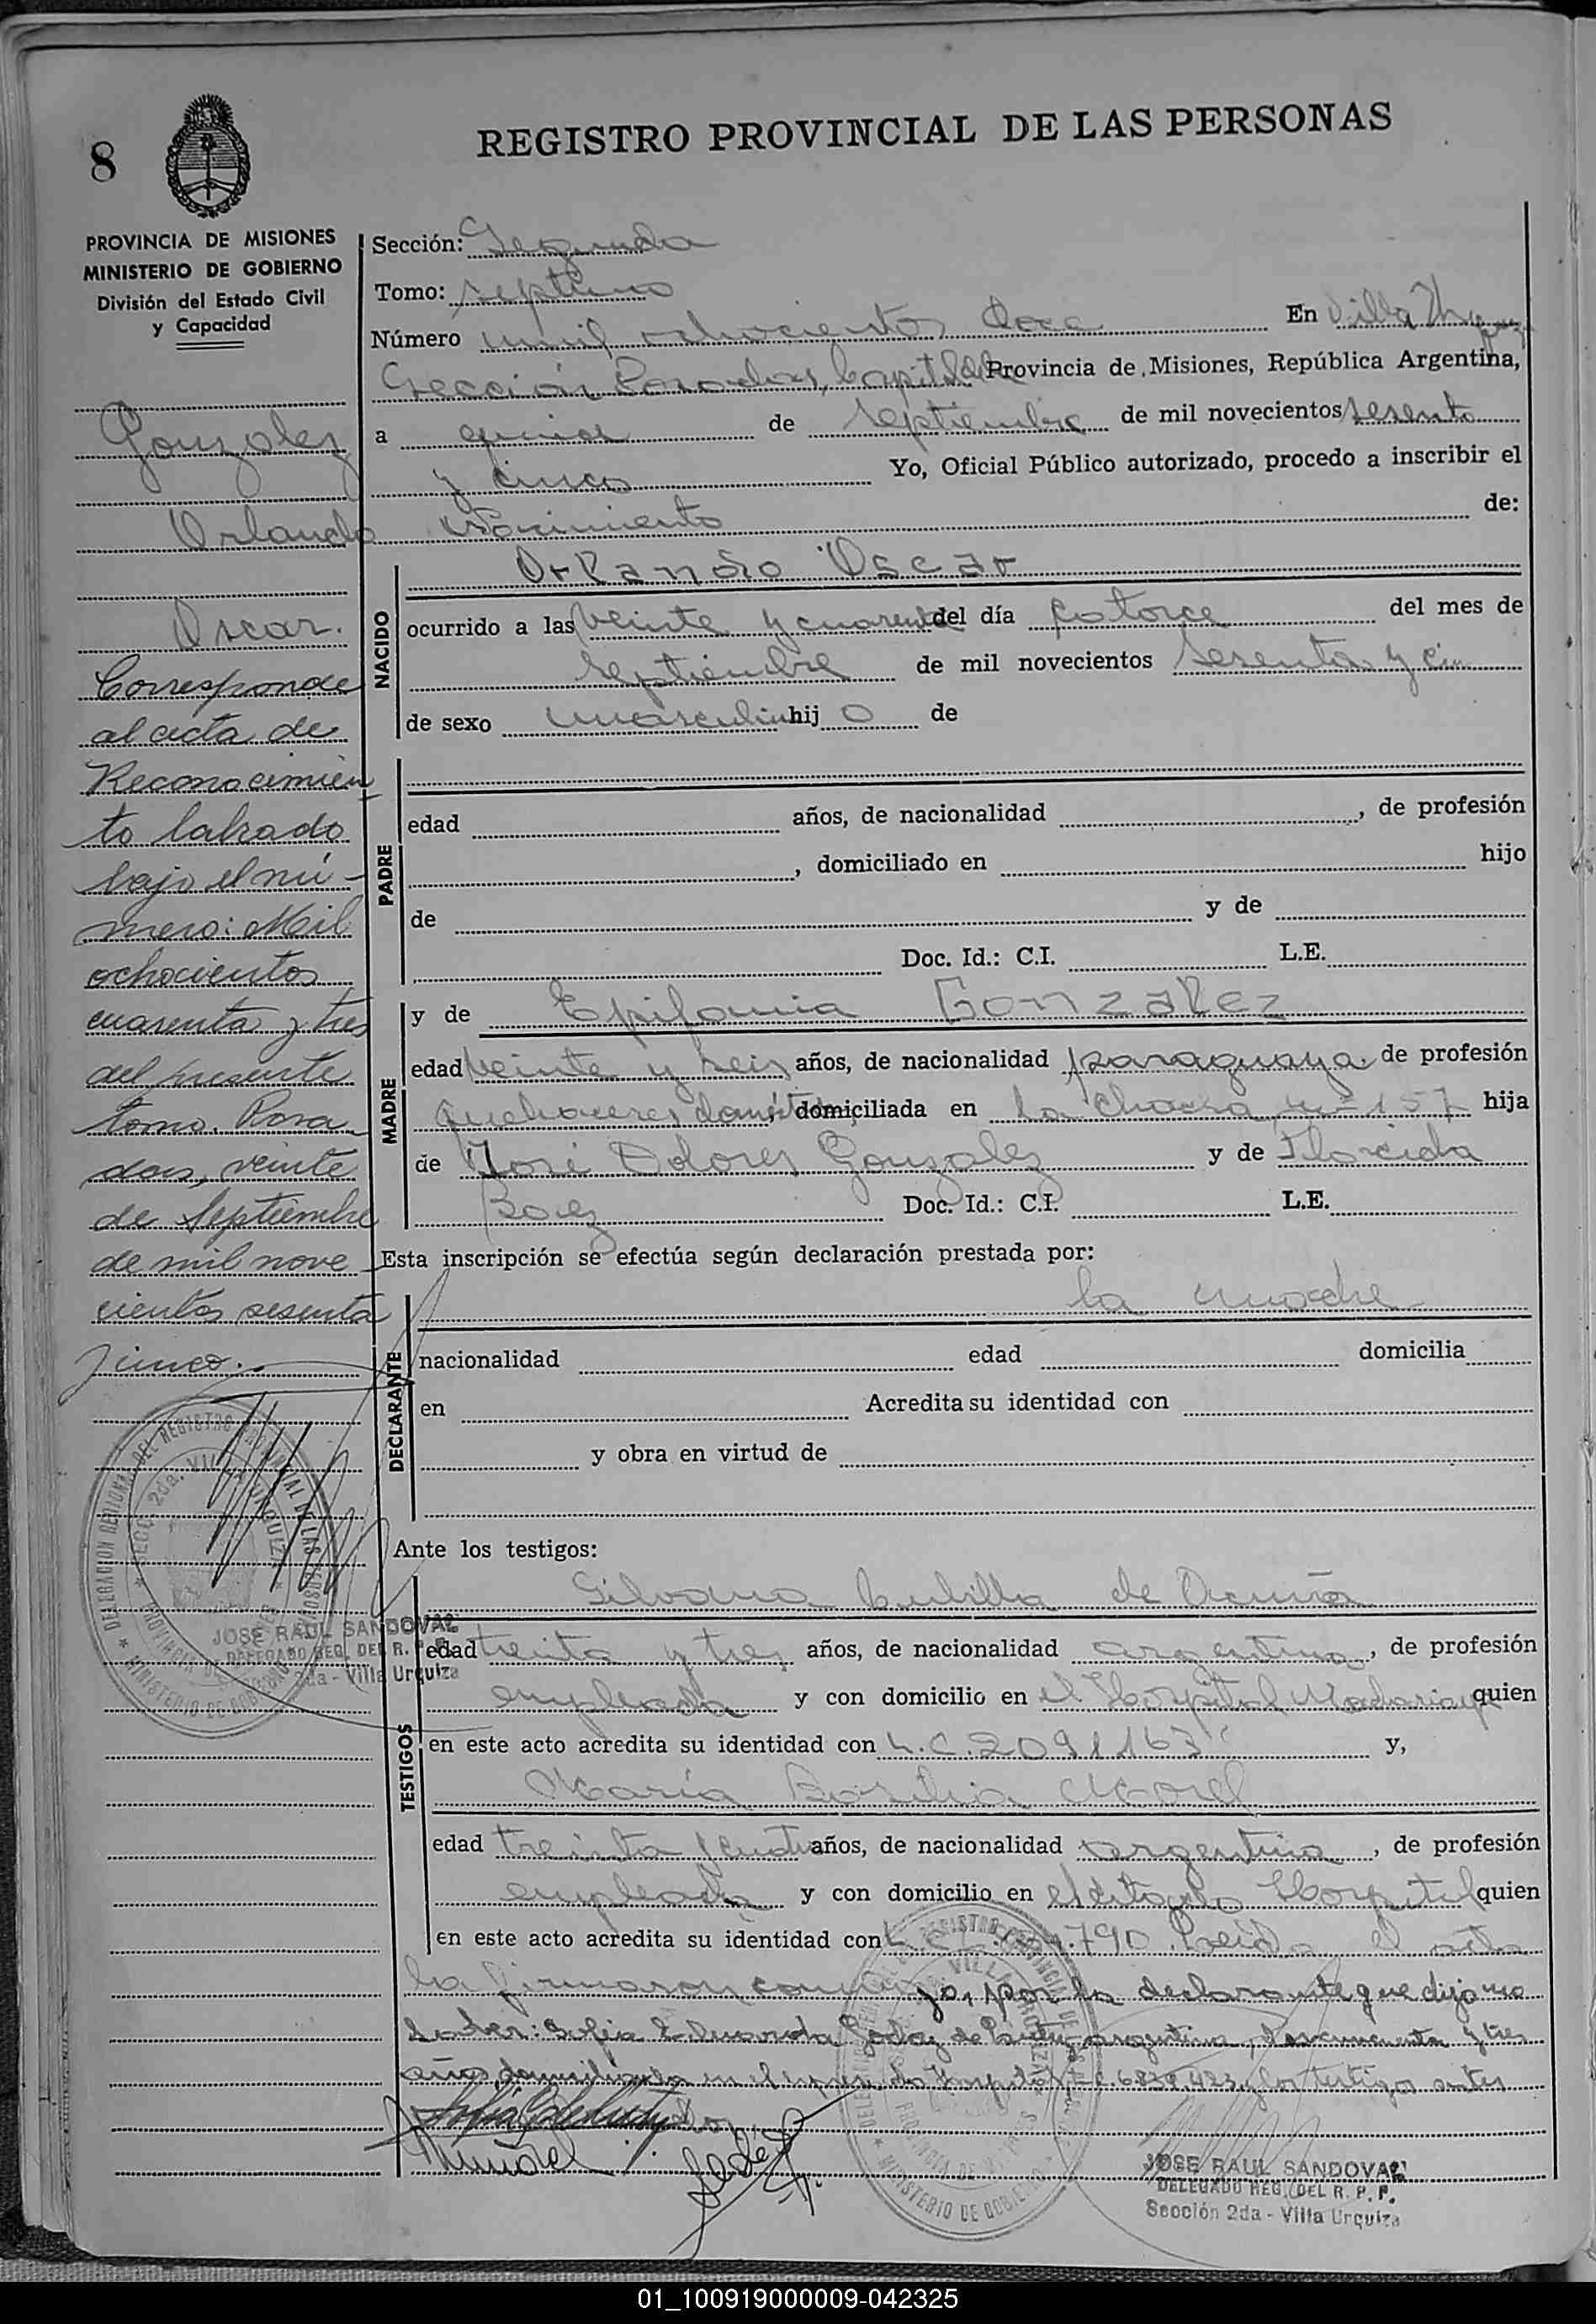 8
REGISTRO PROVINCIAL DE LAS PERSONAS
PROVINCIA DE MISIONES
MINISTERIO DE GOBIERNO
División del Estado Civil
y Capacidad
Gonzalez
Orlando
Oscar.
Corresponde
al acta de
Reconocimien
to labrado
bajo el nú-
mero: Mil
ochocientos
cuarenta y tres
del presente
tomo. Posa
das, veinte
de Septiembre
de mil nove
cientos sesenta
y cinco.
Sección: Segunda
Tomo: septimo
Número mil ochocientos doce En Villa
Sección Posadas, Capital de la Provincia de Misiones, República Argentina,
a quince de Septiembre de mil novecientos sesenta
y cinco Yo, Oficial Público autorizado, procedo a inscribir el
nacimiento de:
NACIDO
Orlando Oscar
ocurrido a las veinte y cuarenta del día catorce del mes de
septiembre de mil novecientos sesenta y cin
de sexo masculino hij o de
PADRE
edad años, de nacionalidad , de profesión
, domiciliado en hijo
de y de
Doc. Id.: C.I. L.E.
MADRE
y de Epifania Gonzalez
edad veinte y seis años, de nacionalidad paraguaya de profesión
quehaceres domésticos, domiciliada en la Chacra nº 157 hija
de José Dolores Gonzalez y de Florida
Baez Doc. Id.: C.I. L.E.
Esta inscripción se efectúa según declaración prestada por:
DECLARANTE
la madre
nacionalidad edad domicilia
en Acredita su identidad con
y obra en virtud de
Ante los testigos:
TESTIGOS
Silvana Cubilla de Acuña
edad treinta y tres años, de nacionalidad argentina, de profesión
empleada y con domicilio en el Hospital Madariaga quien
en este acto acredita su identidad con L.C. 2091163 y,
María Basilia Morel
edad treinta y cuatro años, de nacionalidad argentina, de profesión
empleada y con domicilio en el citado Hospital quien
en este acto acredita su identidad con L.C. .790. Leida el acta
la firmaron conmigo, por la declarante que dijo no
saber: Sofia Eduarda Godoy de argentina, y tres
años domiciliada en el Hospital L.C. 6839.423 y los testigos antes
JOSE RAUL SANDOVAL
DELEGADO REG. DEL R. P. P.
2da - Villa Urquiza
JOSE RAUL SANDOVAL
DELEGADO REG. DEL R. P. P.
Sección 2da - Villa Urquiza
01_100919000009-042325